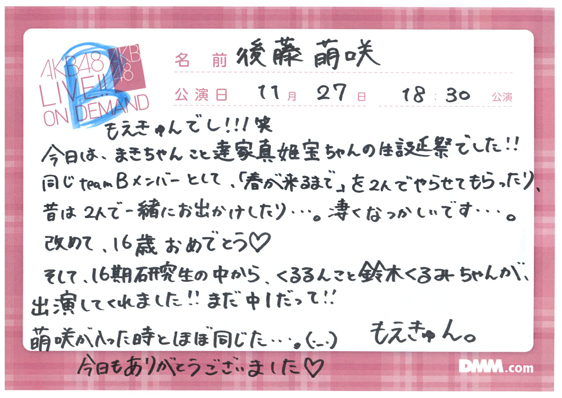 AKB48
LIVE!!
ON DEMAND
AKB
48
B
名 前 後藤 萌咲
公演日 11月 27日 18:30 公演
もえきゅんでし!!!笑
今日は、まきちゃんこと達家真姫宝ちゃんの生誕祭でした!!
同じteamBメンバーとして、「春が来るまで」を2人でやらせてもらったり、
昔は2人で一緒にお出かけしたり…。凄くなつかしいです…。
改めて、16歳おめでとう♡
そして、16期研究生の中から、くるるんこと鈴木くるみちゃんが、
出演してくれました!!まだ中1だって!!
萌咲が入った時とほぼ同じだ…。(._.) もえきゅん。
今日もありがとうございました♡
DMM.com